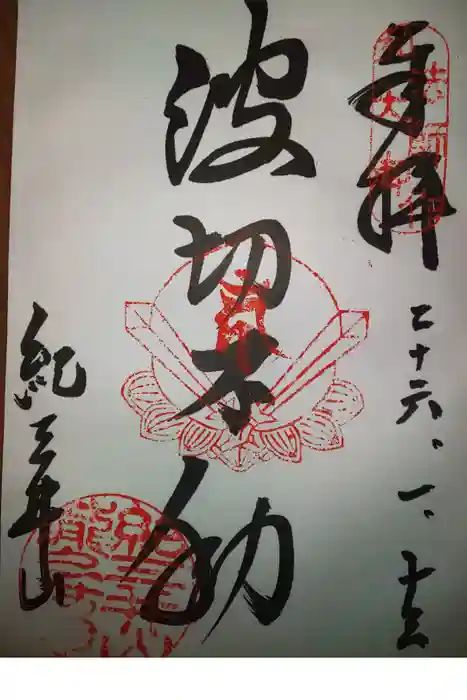 奉拝
二十六、一、十三
波切不動
紀三井山